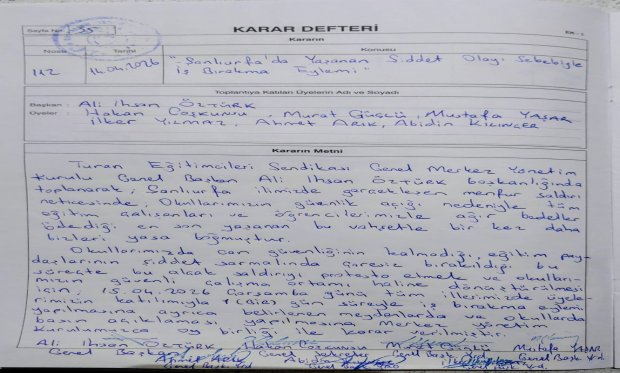 KARAR DEFTERİ
Sayfa No: 55
EK - 1
Kararın
Nosu Tarihi Konusu
112 14.04.2026 "Şanlıurfa'da Yaşanan Şiddet Olayı Sebebiyle
İş Bırakma Eylemi"
Toplantıya Katılan Üyelerin Adı ve Soyadı
Başkan : Ali İhsan ÖZTÜRK
Üyeler : Hakan COŞKUNSU, Murat GÜÇLÜ, Mustafa YAŞAR
İlker YILMAZ, Ahmet ARIK, Abidin KILINÇER
Kararın Metni
Turan Eğitimcileri Sendikası Genel Merkez Yönetim
Kurulu Genel Başkan Ali İhsan ÖZTÜRK başkanlığında
toplanarak; Şanlıurfa ilimizde gerçekleşen menfur saldırı
neticesinde, Okullarımızın güvenlik açığı nedeniyle tüm
eğitim çalışanları ve öğrencilerimizle ağır bedeller
ödediği en son yaşanan bu vahşetle bir kez daha
bizleri yasa boğmuştur.
Okullarımızda can güvenliğinin kalmadığı, eğitim pay-
daşlarının şiddet sarmalında çaresiz bırakıldığı bu
süreçte bu alçak saldırıyı protesto etmek ve okulları-
mızın güvenli çalışma ortamı haline dönüştürülmesi
için, 15.04.2026 Çarşamba günü tüm illerimizde üyele-
rimizin katılımıyla 1 (bir) gün süreyle iş bırakma eylemi
yapılmasına ayrıca belirlenen meydanlarda ve okullarda
basın açıklaması yapılmasına Merkez Yönetim
Kurulumuzca oy birliği ile karar verilmiştir.
Ali İhsan ÖZTÜRK Hakan COŞKUNSU GÜÇLÜ Mustafa YAŞAR
Genel Başkan Genel Sekreter Genel Başk. Yrd. Genel Başk. Yrd.
Ahmet ARIK Abidin
Genel Başk. Yrd. Genel Başk. Yrd. Genel Başk. Yrd.